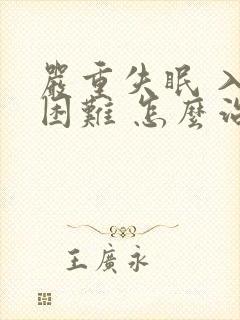 嚴重失眠入
困難 怎麼治
王廣永